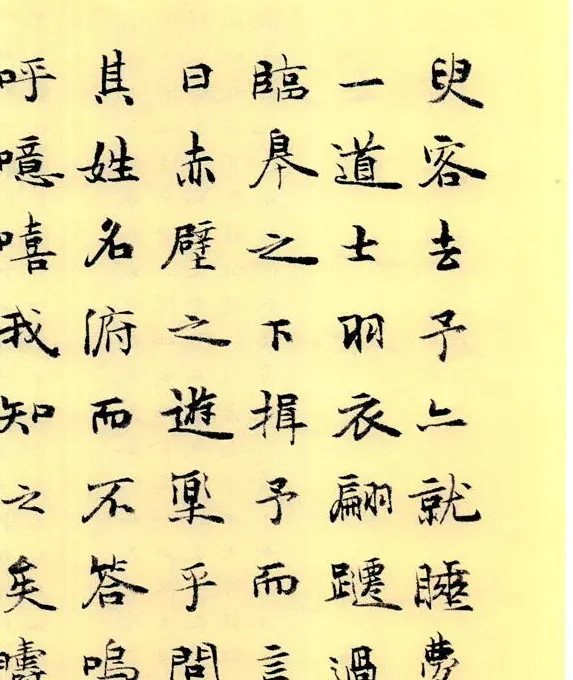 臾客去予亦就睡夢
一道士羽衣翩躚過
臨皋之下揖予而言
曰赤壁之遊樂乎問
其姓名俯而不答嗚
呼噫嘻我知之矣疇